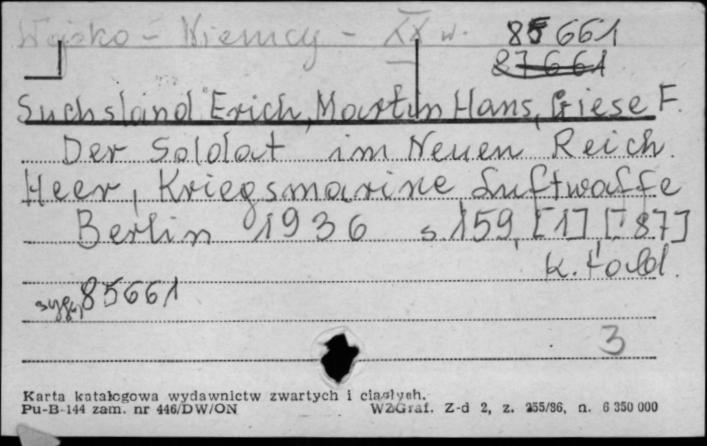 Wojsko - Niemcy - XX w. 85661
87661
Suchsland Erich, Martin Hans, Giese F.
Der Soldat im Neuen Reich.
Heer, Kriegsmarine, Luftwaffe
Berlin 1936 s. 159, [1] [87]
K. tabl.
sygn 85661
3
Karta katalogowa wydawnictw zwartych i ciągłych.
Pu-B-144 zam. nr 446/DW/ON WZGraf. Z-d 2, z. 255/86, n. 6 350 000